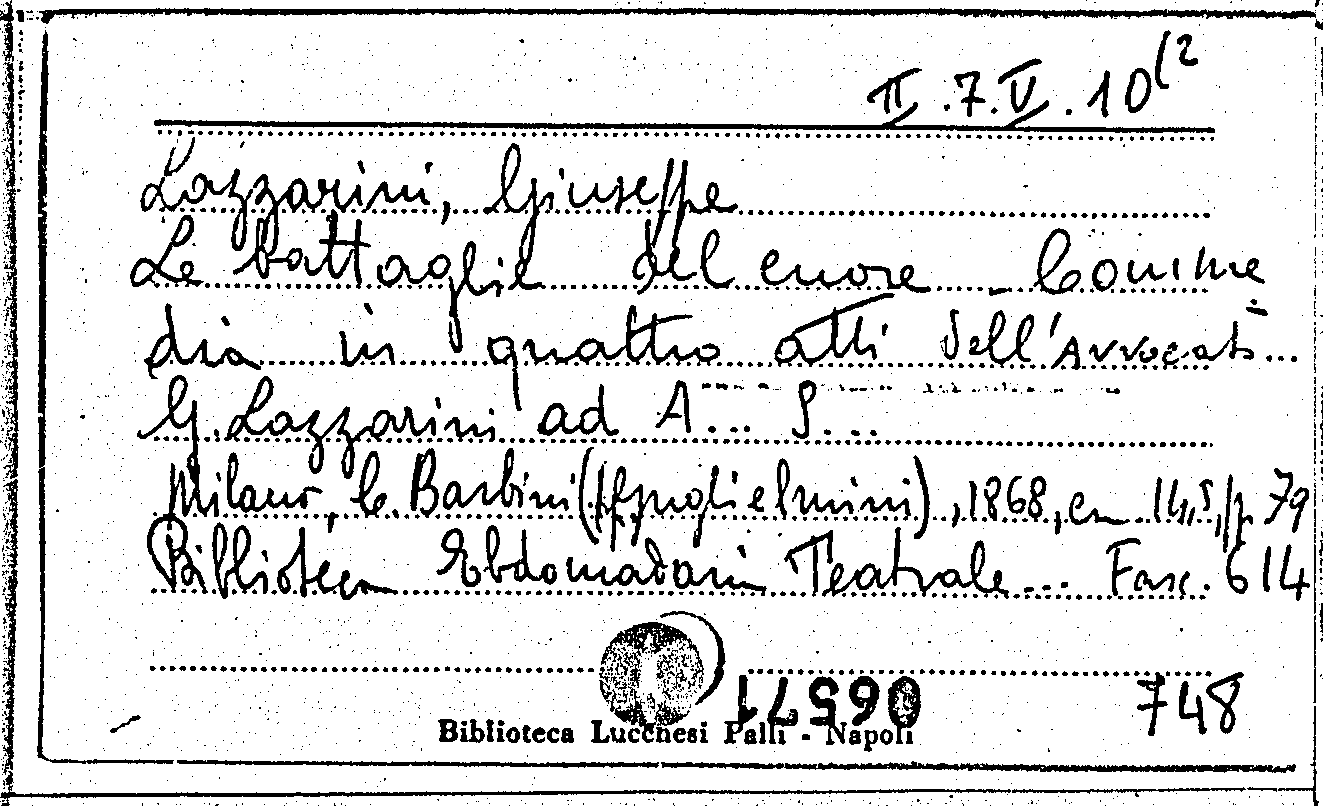 II.7.V.10(2
Lazzarini, Giuseppe
Le battaglie del cuore - Comme
dia in quattro atti dell'Avvocato...
G. Lazzarini ad A... S...
Milano, C. Barbini (Guglielmini), 1868, cm 14,5, p. 79
Biblioteca Ebdomadaria Teatrale... Fasc. 614
06571
748
Biblioteca Lucchesi Palli - Napoli